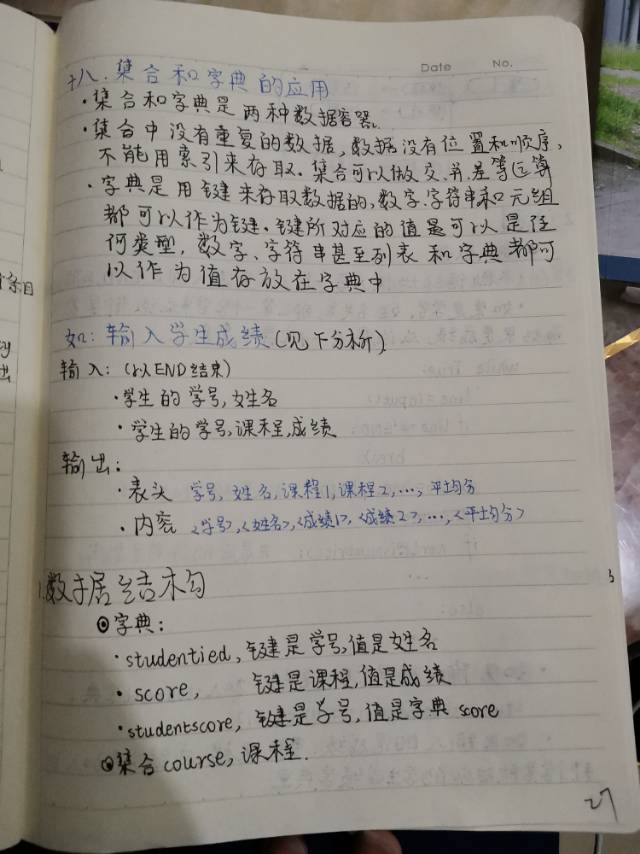 Date No.
十八、集合和字典的应用
·集合和字典是两种数据容器.
·集合中没有重复的数据,数据没有位置和顺序,
不能用索引来存取.集合可以做交、并、差等运算
·字典是用键来存取数据的,数字、字符串和元组
都可以作为键.键所对应的值是可以是任
何类型,数字、字符串甚至列表和字典都可
以作为值存放在字典中
如:输入学生成绩(见下分析)
输入:(以END结束)
·学生的学号,姓名
·学生的学号,课程,成绩
输出:
·表头 学号,姓名,课程1,课程2,…,平均分
·内容 <学号>,<姓名>,<成绩1>,<成绩2>,…,<平均分>
1.数据结构
◎字典:
·studentied,键是学号,值是姓名
·score, 键是课程,值是成绩
·studentscore,键是学号,值是字典score
◎集合course,课程.
27